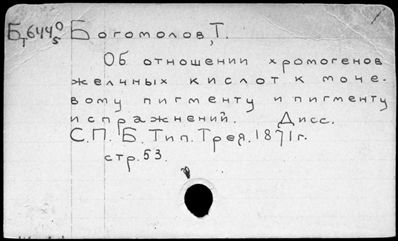 Б₁644⁰₅ Богомолов, Т.
Об отношении хромогенов
желчных кислот к моче-
вому пигменту и пигменту
испражнений. Дисс.
С.П.Б. Тип. Трея. 1871г.
стр. 53.